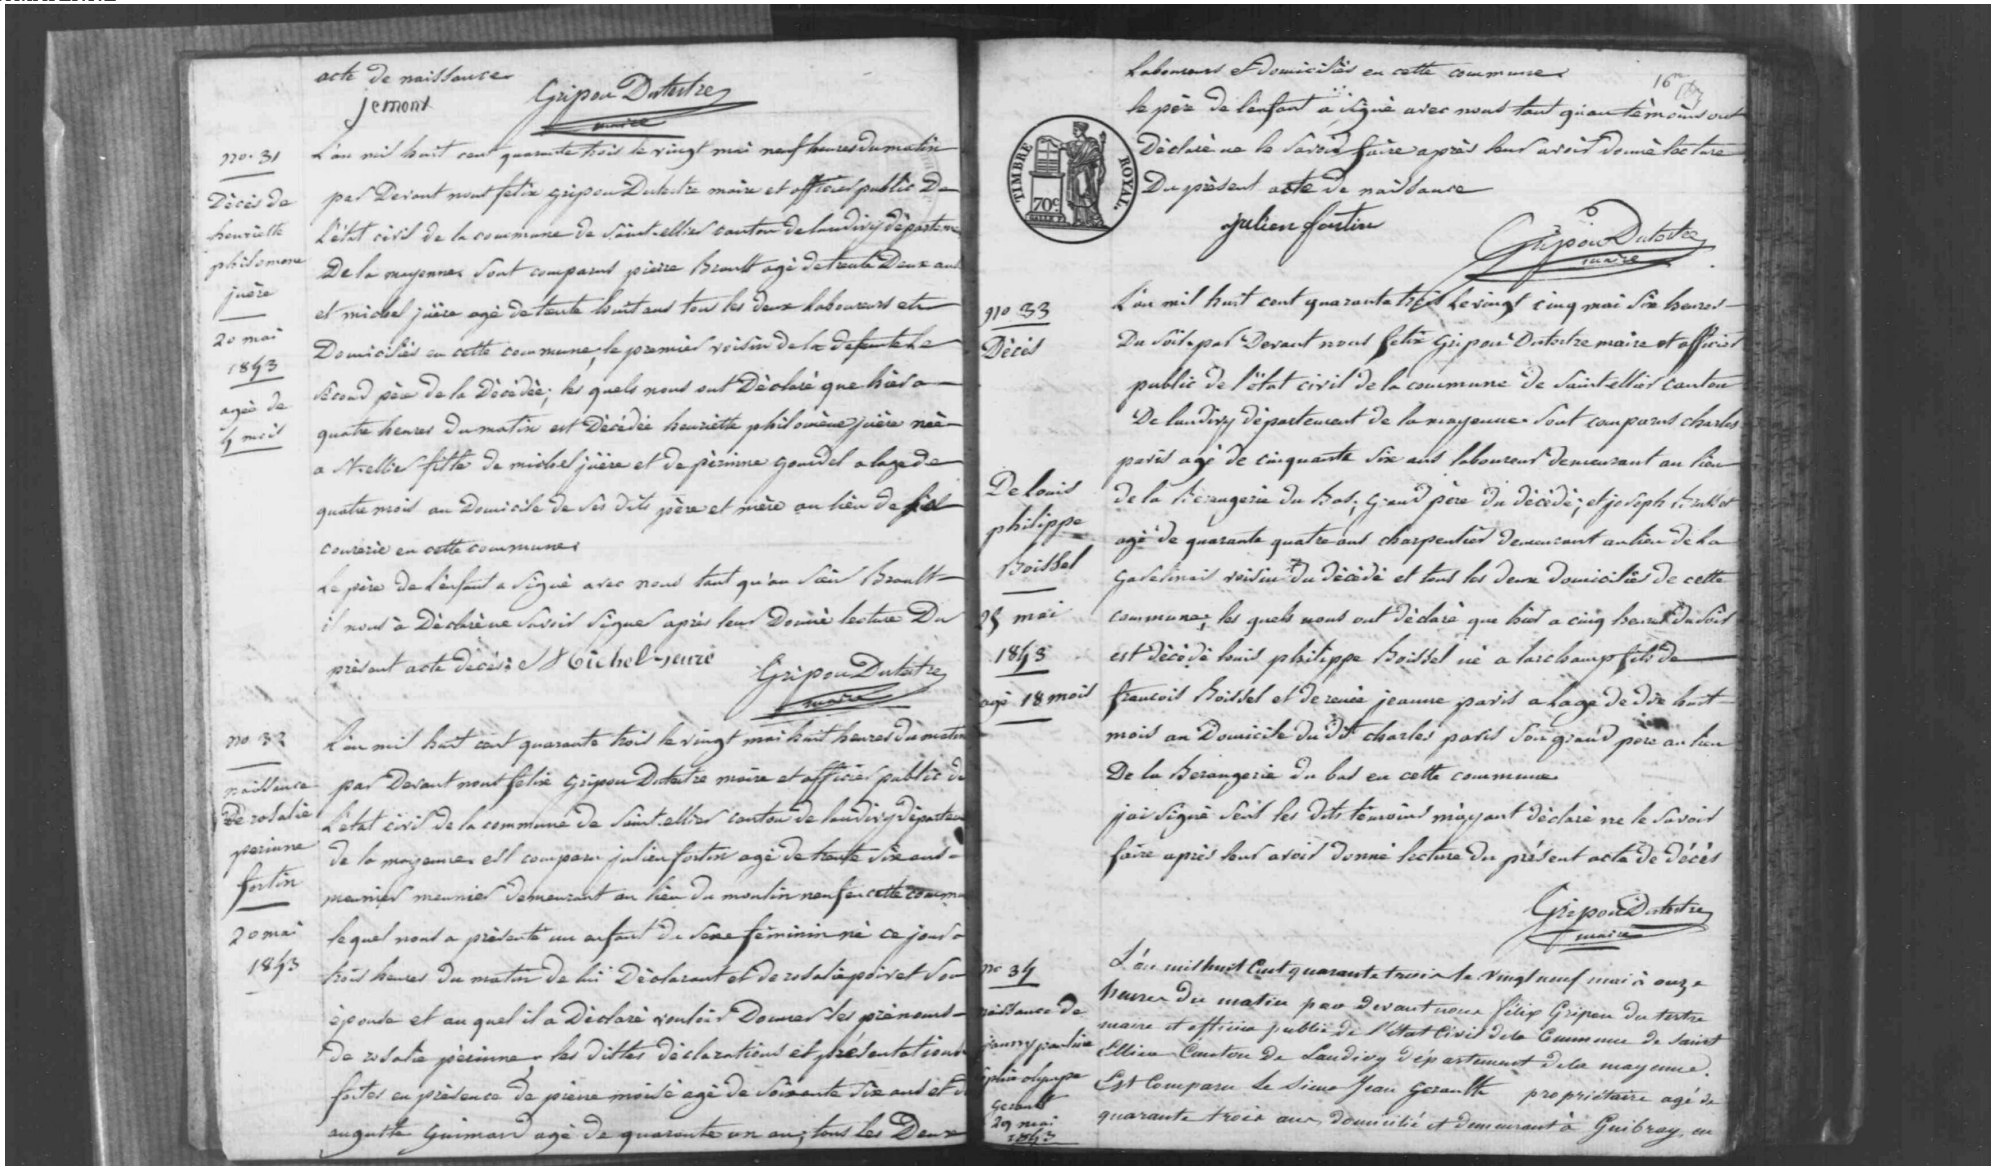 acte de naissance
jemont
Gripon Dutertre
maire
no. 31
Décès de
henriette
philomene
juère
20 mai
1843
agée de
4 mois
L'an mil huit cent quarante trois le vingt mai neuf heures du matin
par Devant nous felix gripon Dutertre maire et officier public De
L'état civil de la commune de Saint-ellier canton de landivy départeme
De la mayenne sont comparus pierre Brault agé de trente Deux ans
et michel juère agé de trente huit ans tous les deux laboureurs et
Domiciliés en cette commune, le premier voisin de la defunte Le
Second père de la Décédée; les quels nous ont Déclaré que hier a
quatre heures du matin est Décédée henriette philomène juère née
a St ellier fille de michel juère et de périnne gondel a lage de
quatre mois au Domicile de Ses dits père et mère au lieu de
courerie en cette commune
Le père de L'enfant a Signé avec nous tant qu'au Sieur Brault
il nous à Déclaré ne Savoir Signer après leur Donné lecture Du
présent acte décès Michel jeuré
Gripon Dutertre
maire
no 32
naissance
De rosalie
perinne
fortin
20 mai
1843
L'an mil huit cent quarante trois le vingt mai huit heures du matin
par Devant nous felix Gripon Dutertre maire et officier public de
L'état civil de la commune de Saint-ellier canton de landivy départeme
de la mayenne est comparu julien fortin agé de trente Six ans
meunier meunier demeurant au lieu du moulin neuf en cette commu
lequel nous a présenté un enfant du Sexe féminin né ce jour a
trois heures du matin de lui Déclarant et de rosalie poivet Son
épouse et au quel il a Déclaré vouloir Donner les prénoms
de rosalie périnne, les dittes déclarations et présentations
faites en présence de pierre moisé agé de Soixante Six ans et d
auguste Guimard agé de quarante un an; tous les Deux
16
Laboureurs et domiciliés en cette commune
le père de l'enfant à Signé avec nous tant qu'au témoins ont
Déclaré ne le Savoir faire après leur avoir donné lecture
Du présent acte de naissance
TIMBRE ROYAL.
70c
julien fortin
Gripon Dutertre
maire
no 33
Décès
De louis
philippe
Boissel
25 mai
1843
agé 18 mois
L'an mil huit cent quarante trois Le vingt cinq mai Six heures
Du Soir par Devant nous felix Gripon Dutertre maire et officier
public de l'état civil de la commune de Saint-ellier canton
De landivy département de la mayenne Sont comparus charles
paris agé de cinquante Six ans laboureur demeurant au lieu
de la Bérangerie du Bas, grand père du décédé; et joseph
agé de quarante quatre ans charpentier demeurant au lieu de La
voisin du décédé et tous les deux domiciliés de cette
commune, les quels nous ont déclaré que hier a cinq heures du Soir
est décédé louis philippe Boissel né a larchamp fils de
francois Boissel et de renée jeanne paris a Lage de dix huit
mois au Domicile du dit charles paris Son grand père au lieu
De la Berangerie du bas en cette commune
jai Signé Seul les dits témoins m'ayant déclaré ne le Savoir
faire après leur avoir donné lecture du présent acte de décès
Gripon Dutertre
maire
no 34
naissance de
pauline
olympe
Gerault
29 mai
1843
L'an mil huit Cent quarante trois le vingt neuf mai à onze
heures du matin par devant nous félix Gripon du tertre
maire et officier public de l'état Civil de la Commune de Saint
Ellier Canton de Landivy département de la mayenne.
Est Comparu le Sieur Jean Gerault propriétaire agé de
quarante trois ans, domicilié et demeurant à Guibray, en